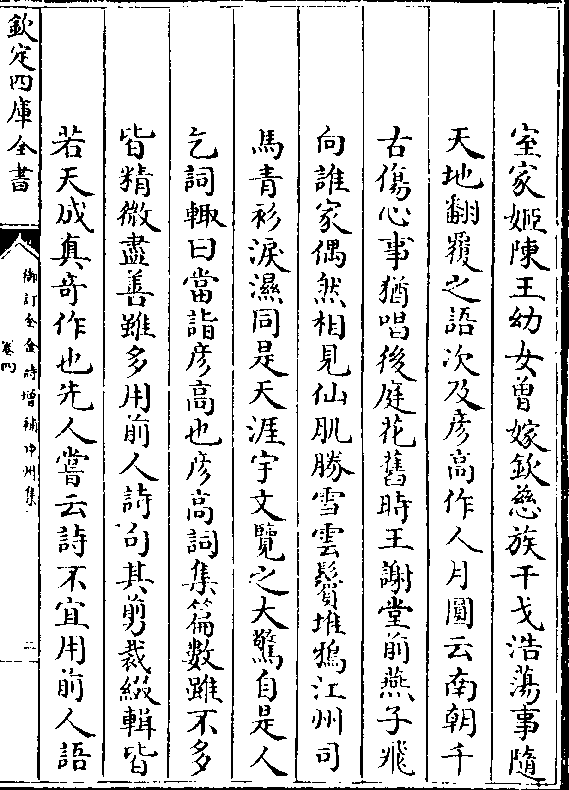 室家姬陳王幼女曽嫁欽慈族干戈浩蕩事隨
天地翻覆之語次及彦高作人月圓云南朝千
古傷心事猶唱後庭花舊時王謝堂前燕子飛
向誰家偶然相見仙肌勝雪雲鬟堆鴉江州司
馬青衫淚濕同是天涯宇文覽之大驚自是人
乞詞輙曰當詣彦高也彦高詞集篇數雖不多
皆精微盡善雖多用前人詩句其剪裁綴輯皆
若天成真竒作也先人嘗云詩不宜用前人語
欽定四庫全書
御訂全金詩增補中州集
卷四
二